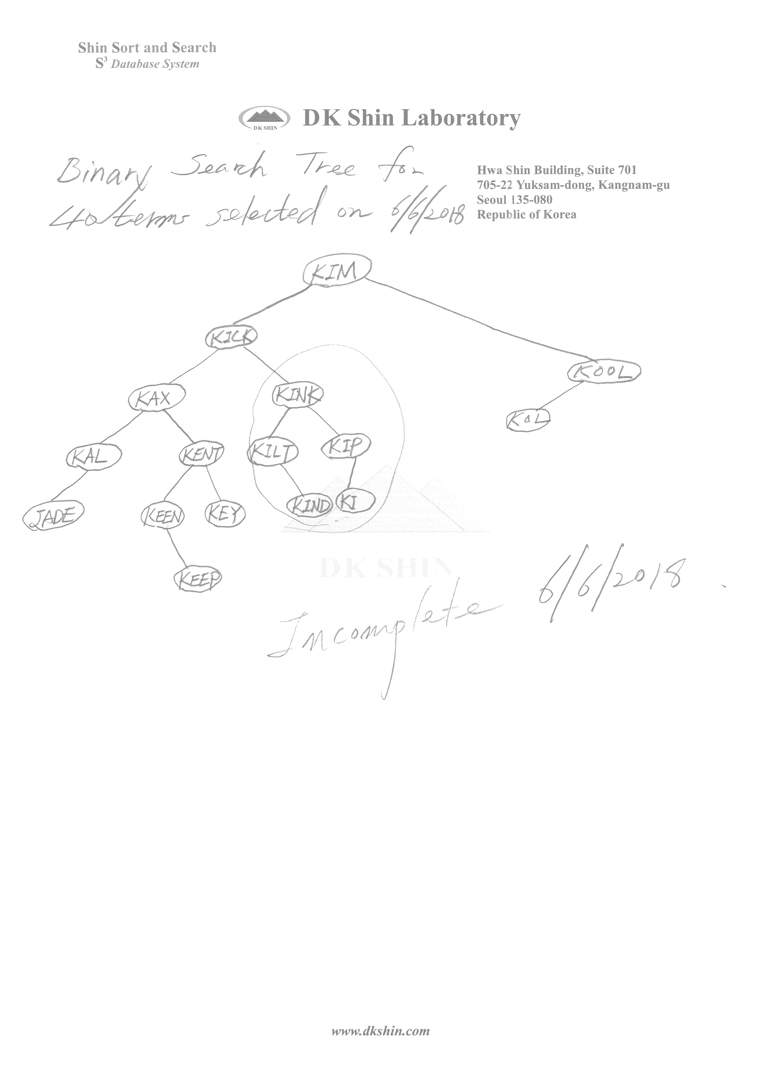 Shin Sort and Search
S³ Database System
DK SHIN
DK Shin Laboratory
Binary Search Tree for
40 terms selected on 6/6/2018
Hwa Shin Building, Suite 701
705-22 Yuksam-dong, Kangnam-gu
Seoul 135-080
Republic of Korea
KIM
KICK
KOOL
KAX
KINK
KOL
KAL
KENT
KILT
KIP
JADE
KEEN
KEY
KIND
KI
KEEP
DK SHIN
Incomplete 6/6/2018
www.dkshin.com